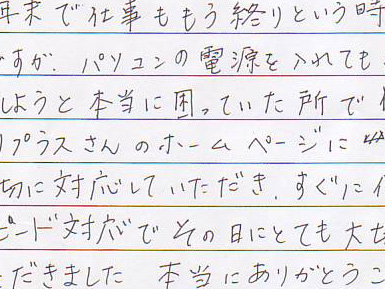 年末で仕事ももう終りという時
ですが、パソコンの電源を入れても
しようと本当に困っていた所で
プラスさんのホームページに
切に対応していただき、すぐに
ピード対応でその日にとても大切
ただきました 本当にありがとうご